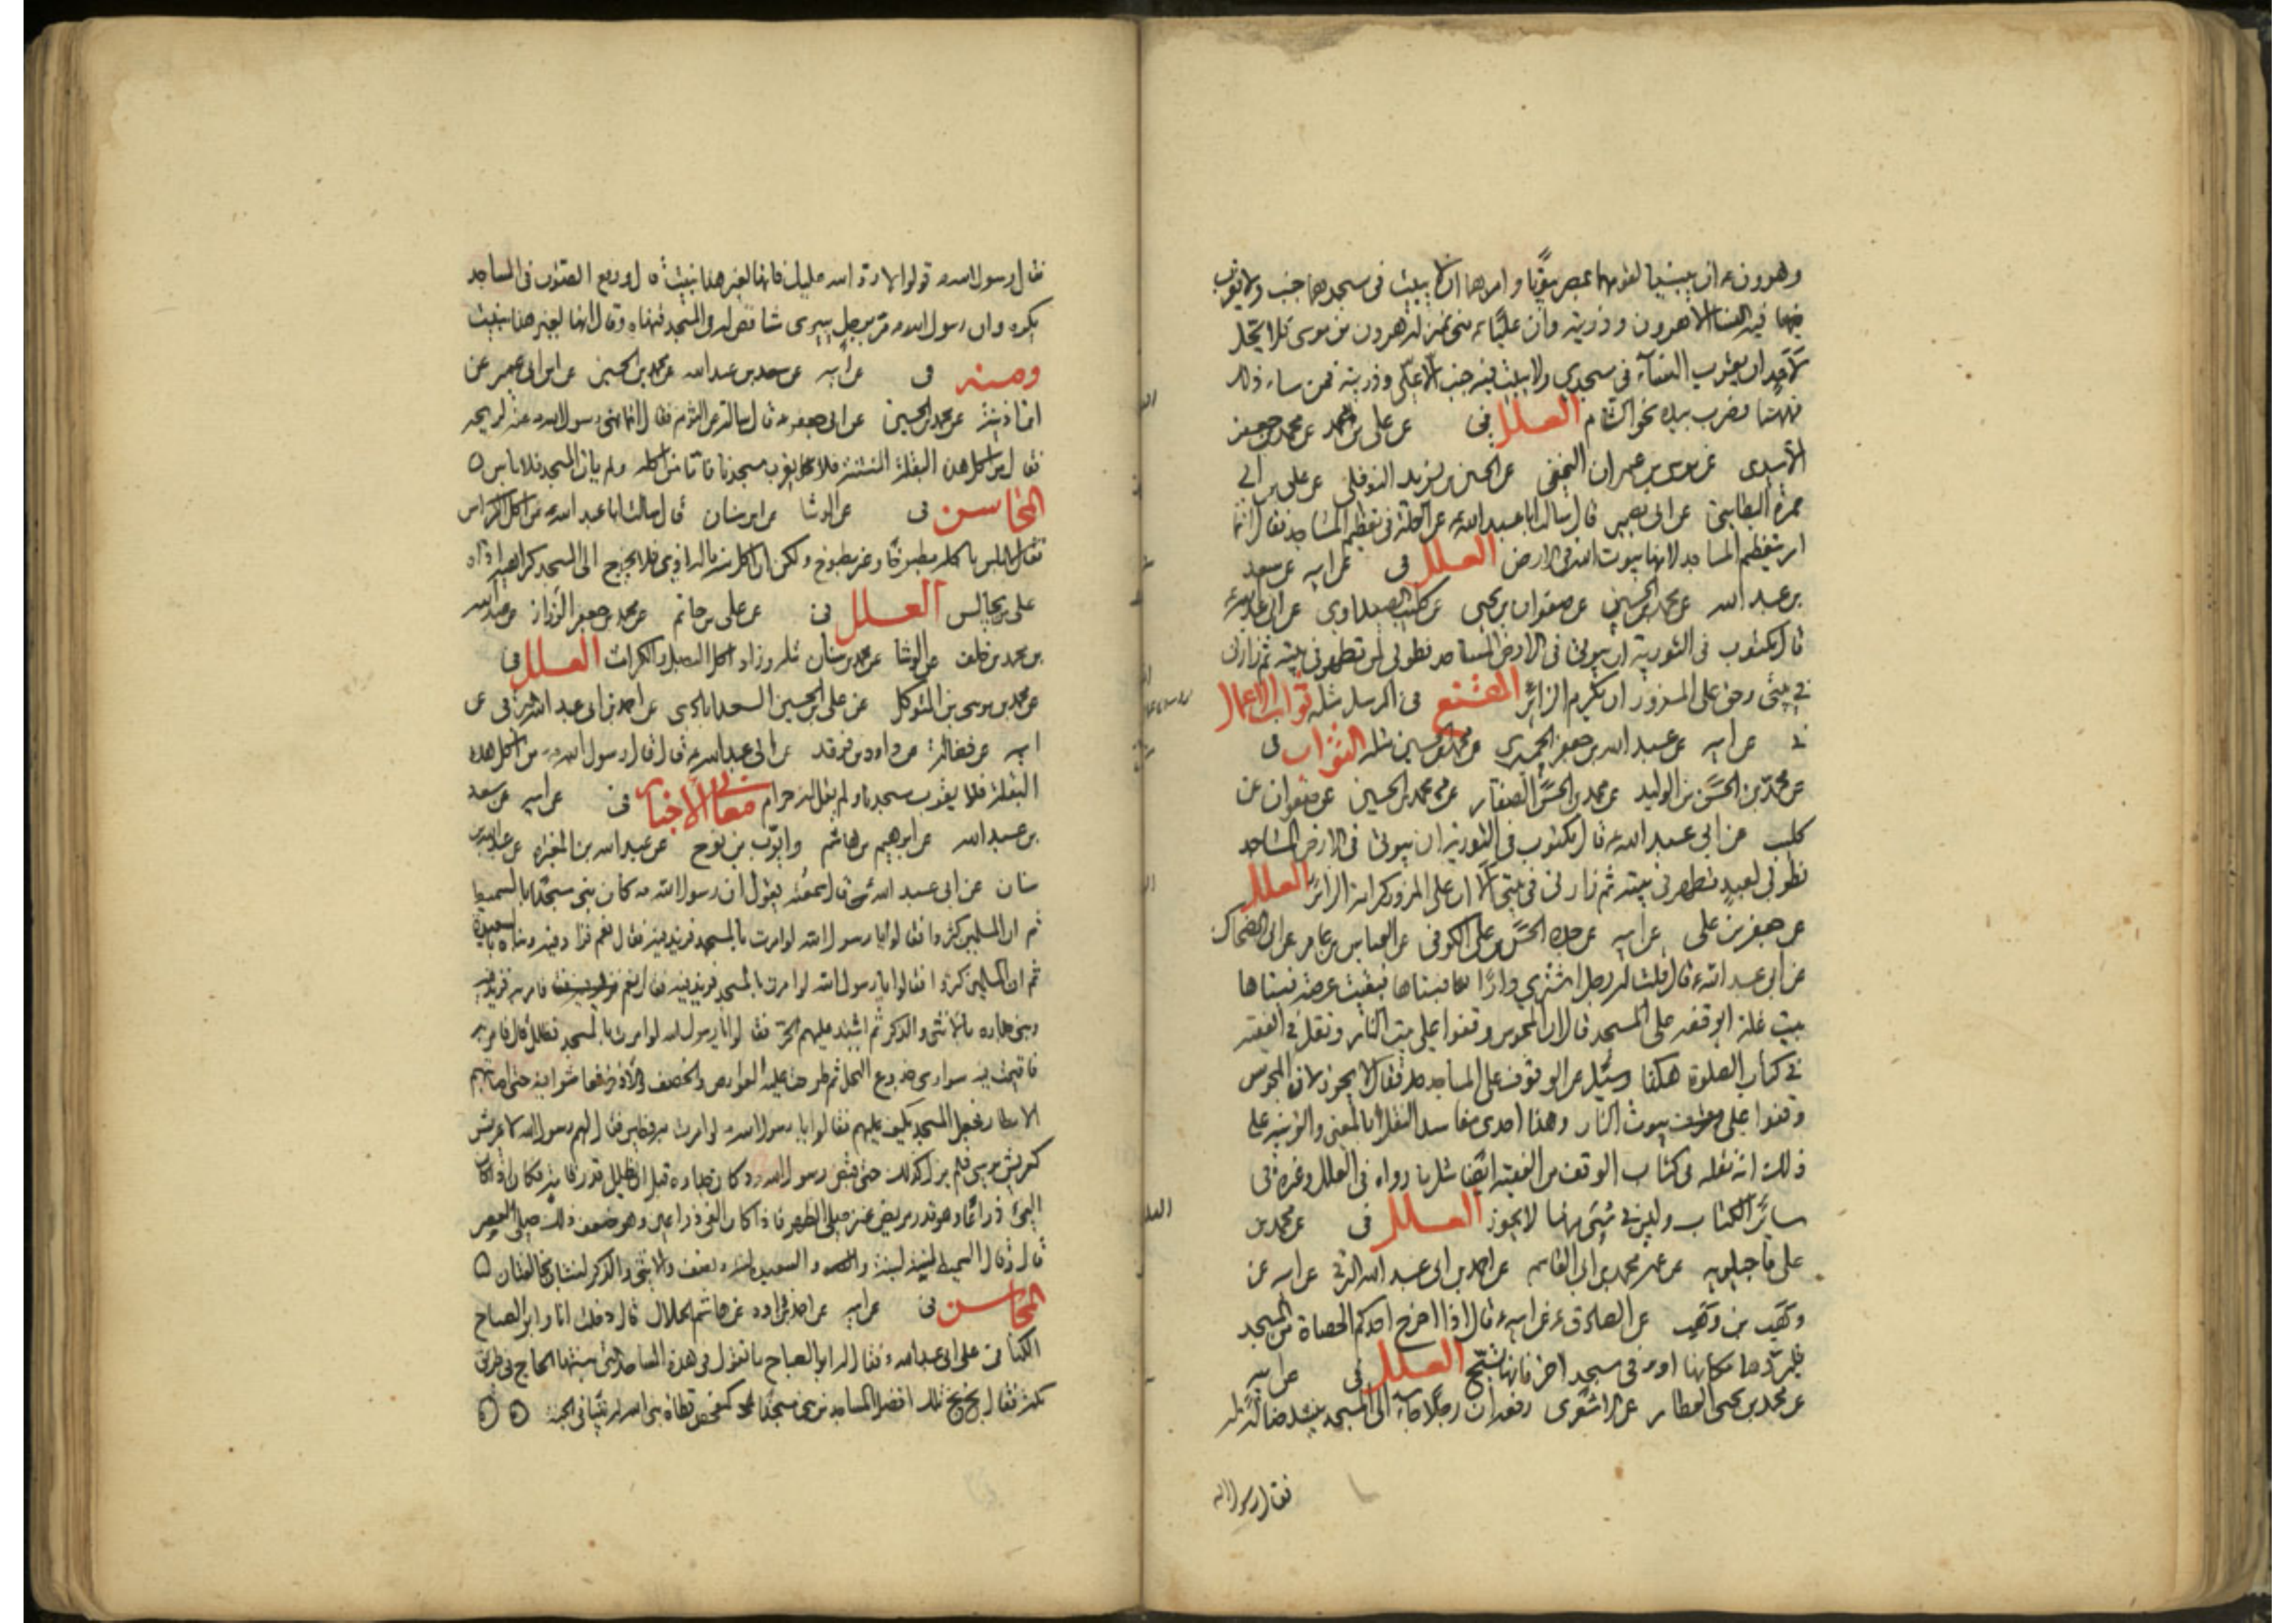 وهرون ع ان يبنيا لقومهما بمصر بيوتا وامرهما ان لا يبيت في مسجدهما جنب ولا يقرب
فيه النساء الا هرون وذريته وان عليا ع مني بمنزلة هرون من موسى فلا يحل
لاحد ان يقرب النساء في مسجدي ولا يبيت فيه جنب الا علي وذريته فمن ساءه ذلك
فههنا وضرب بيده نحو الشام العلل في عن علي بن احمد عن محمد بن جعفر
الاسدي عن موسى بن عمران النخعي عن الحسين بن يزيد النوفلي عن علي بن ابي
حمزة البطايني عن ابي بصير قال سالت ابا عبد الله ع عن العلة في تعظيم المساجد فقال انما
امر بتعظيم المساجد لانها بيوت الله في الارض العلل في عن ابيه عن سعد
بن عبد الله عن محمد بن الحسين عن صفوان بن يحيى عن كليب الصيداوي عن ابي عبد الله ع
قال مكتوب في التورية ان بيوتي في الارض المساجد فطوبى لمن تطهر في بيته ثم زارني
في بيتي وحق على المزور ان يكرم الزائر المقنع في المرسل مثله ثواب الاعمال
في عن ابيه عن عبد الله بن جعفر الحميري عن محمد بن الحسين مثله الثواب في
عن محمد بن الحسن بن الوليد عن محمد بن الحسن الصفار عن محمد بن الحسين عن صفوان عن
كليب عن ابي عبد الله ع قال مكتوب في التورية ان بيوتي في الارض المساجد
فطوبى لعبد تطهر في بيته ثم زارني في بيتي الا ان على المزور كرامة الزائر العلل
عن جعفر بن علي عن ابيه عن جده الحسن بن علي الكوفي عن العباس بن عامر عن ابي الضحاك
عن ابي عبد الله ع قال قلت له رجل اشترى دارا فبناها فبقيت عرصة فبناها
بيت غلة ايوقفه على المسجد قال ان المجوس وقفوا على بيت النار ونقل في الفقيه
في كتاب الصلوة هكذا وسئل عن الوقوف على المساجد فقال لا يجوز لان المجوس
وقفوا على بيوت النار وهذا احدى مفاسد النقل بالمعنى والقرينة على
ذلك انه نقله في كتاب الوقف من الفقيه ايضا مثل ما رواه في العلل وغيره في
ساير الكتاب وليس في شيء منها لا يجوز العلل في عن محمد بن
علي ماجيلويه عن عمه محمد بن ابي القاسم عن احمد بن ابي عبد الله البرقي عن ابيه عن
وهب بن وهب عن الصادق ع عن ابيه ع قال اذا اخرج احدكم الحصاة من المسجد
فليردها مكانها او في مسجد اخر فانها تسبح العلل في عن ابيه
عن محمد بن يحيى العطار عن الاشعري رفعه ان رجلا جاء الى المسجد ينشد ضالة له
فقال رسول الله
فقال رسول الله ص قولوا لا رد الله عليك فانها لغير هذا بنيت قال ورفع الصوت في المساجد
يكره وان رسول الله ص مر برجل يبري مشاقص له في المسجد فنهاه وقال انها لغير هذا بنيت
ومنه في عن ابيه عن سعد بن عبد الله عن محمد بن الحسين عن ابن ابي عمير عن
ابن اذينة عن محمد بن الحسين عن ابي جعفر ع قال سالته عن الثوم فقال انما نهى رسول الله ص عنه لريحه
فقال من اكل هذه البقلة المنتنة فلا يقرب مسجدنا فاما من اكله ولم يات المسجد فلا باس
المحاسن في عن الوشا عن ابن سنان قال سالت ابا عبد الله ع عن اكل الكراث
فقال لا باس باكله مطبوخا وغير مطبوخ ولكن ان اكل منه ماله اذى فلا يخرج الى المسجد كراهية اذاه
على من يجالس العلل في عن علي بن حاتم عن محمد بن جعفر الرزاز عن عبد الله
بن محمد بن خلف عن الوشا عن محمد بن سنان مثله وزاد اكل البصل والكراث العلل في
عن محمد بن موسى بن المتوكل عن علي بن الحسين السعدابادي عن احمد بن ابي عبد الله البرقي عن
ابيه عن فضالة عن داود بن فرقد عن ابي عبد الله ع قال قال رسول الله ص من اكل هذه
البقلة فلا يقرب مسجدنا ولم يقل انه حرام معاني الاخبار في عن ابيه عن سعد
بن عبد الله عن ابراهيم بن هاشم وايوب بن نوح عن عبد الله بن المغيرة عن عبد الله بن
سنان عن ابي عبد الله ع قال سمعته يقول ان رسول الله ص كان بنى مسجده بالسميط
ثم ان المسلمين كثروا فقالوا يا رسول الله لو امرت بالمسجد فزيد فيه فقال نعم فزاد فيه وبناه بالسعيدة
ثم ان المسلمين كثروا فقالوا يا رسول الله لو امرت بالمسجد فزيد فيه فقال نعم فامر به فزيد فيه
وبنى جداره بالانثى والذكر ثم اشتد عليهم الحر فقالوا يا رسول الله لو امرت بالمسجد فظلل قال فامر به
فاقيمت فيه سواري جذوع النخل ثم طرحت عليه العوارض والخصف والاذخر فعاشوا فيه حتى اصابتهم
الامطار فجعل المسجد يكف عليهم فقالوا يا رسول الله ص لو امرت به فطين فقال لهم رسول الله لا عريش
كعريش موسى فلم يزل كذلك حتى قبض رسول الله ص وكان جداره قبل ان يظلل قدر قامة فكان اذا كان
الفيء ذراعا وهو قدر مربض عنز صلى الظهر فاذا كان الفيء ذراعين وهو ضعف ذلك صلى العصر
قال وقال السميط لبنة لبنة والسعيدة لبنة ونصف والانثى والذكر لبنتان مخالفتان
المحاسن في عن ابيه عن احمد بن داود عن هاشم الحلال قال دخلت انا وابو الصباح
الكناني على ابي عبد الله ع فقال له ابو الصباح ما تقول في هذه المساجد التي بنتها الحاج في طريق
مكة فقال بخ بخ تلك افضل المساجد من بنى مسجدا كمفحص قطاة بنى الله له بيتا في الجنة